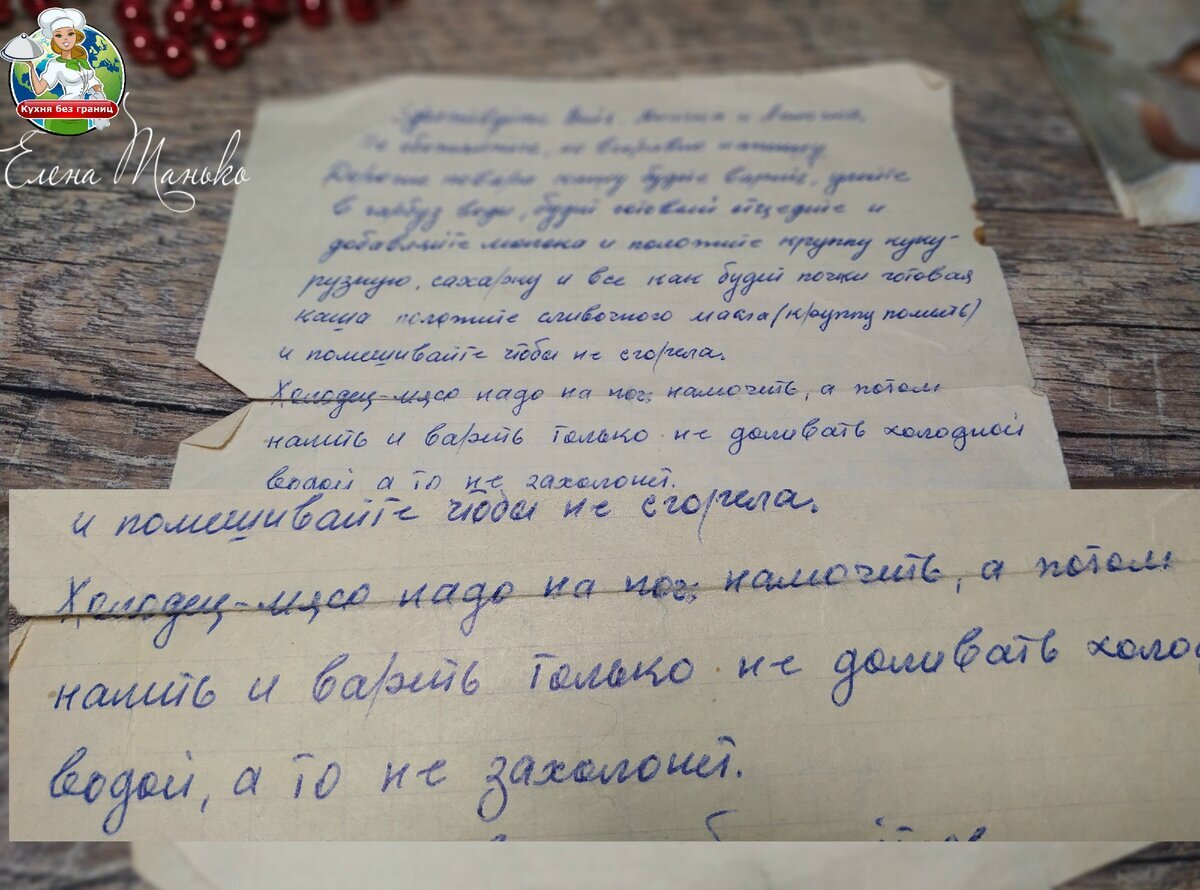 Кухня без границ
Елена Манько
Здравствуйте и
Не обижайтесь, но напишу
кашу будите варить,
в гарбуз воды, будит готовый отцедите и
добавляйте молока и положите круппу куку-
рузную, сахарку и все как будит почти готовая
каша положите сливочного масла (круппу помыть)
и помешивайте чтобы не сгорела.
Холодец-мясо надо на намочить, а потом
налить и варить только не доливать холодной
водой а то не захолонит.
и помешивайте чтобы не сгорела.
Холодец-мясо надо на намочить, а потом
налить и варить только не доливать холо
водой, а то не захолонит.